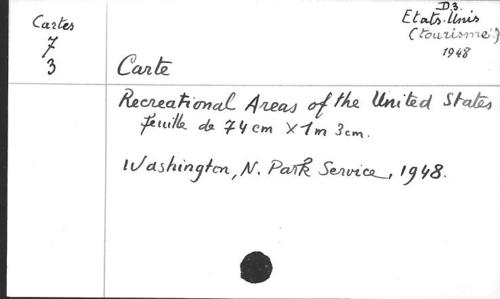 Cartes
7
3
D.3.
Etats-Unis
(tourisme)
1948
Carte
Recreational Areas of the United States
feuille de 74 cm X 1 m 3 cm.
Washington, N. Park Service, 1948.